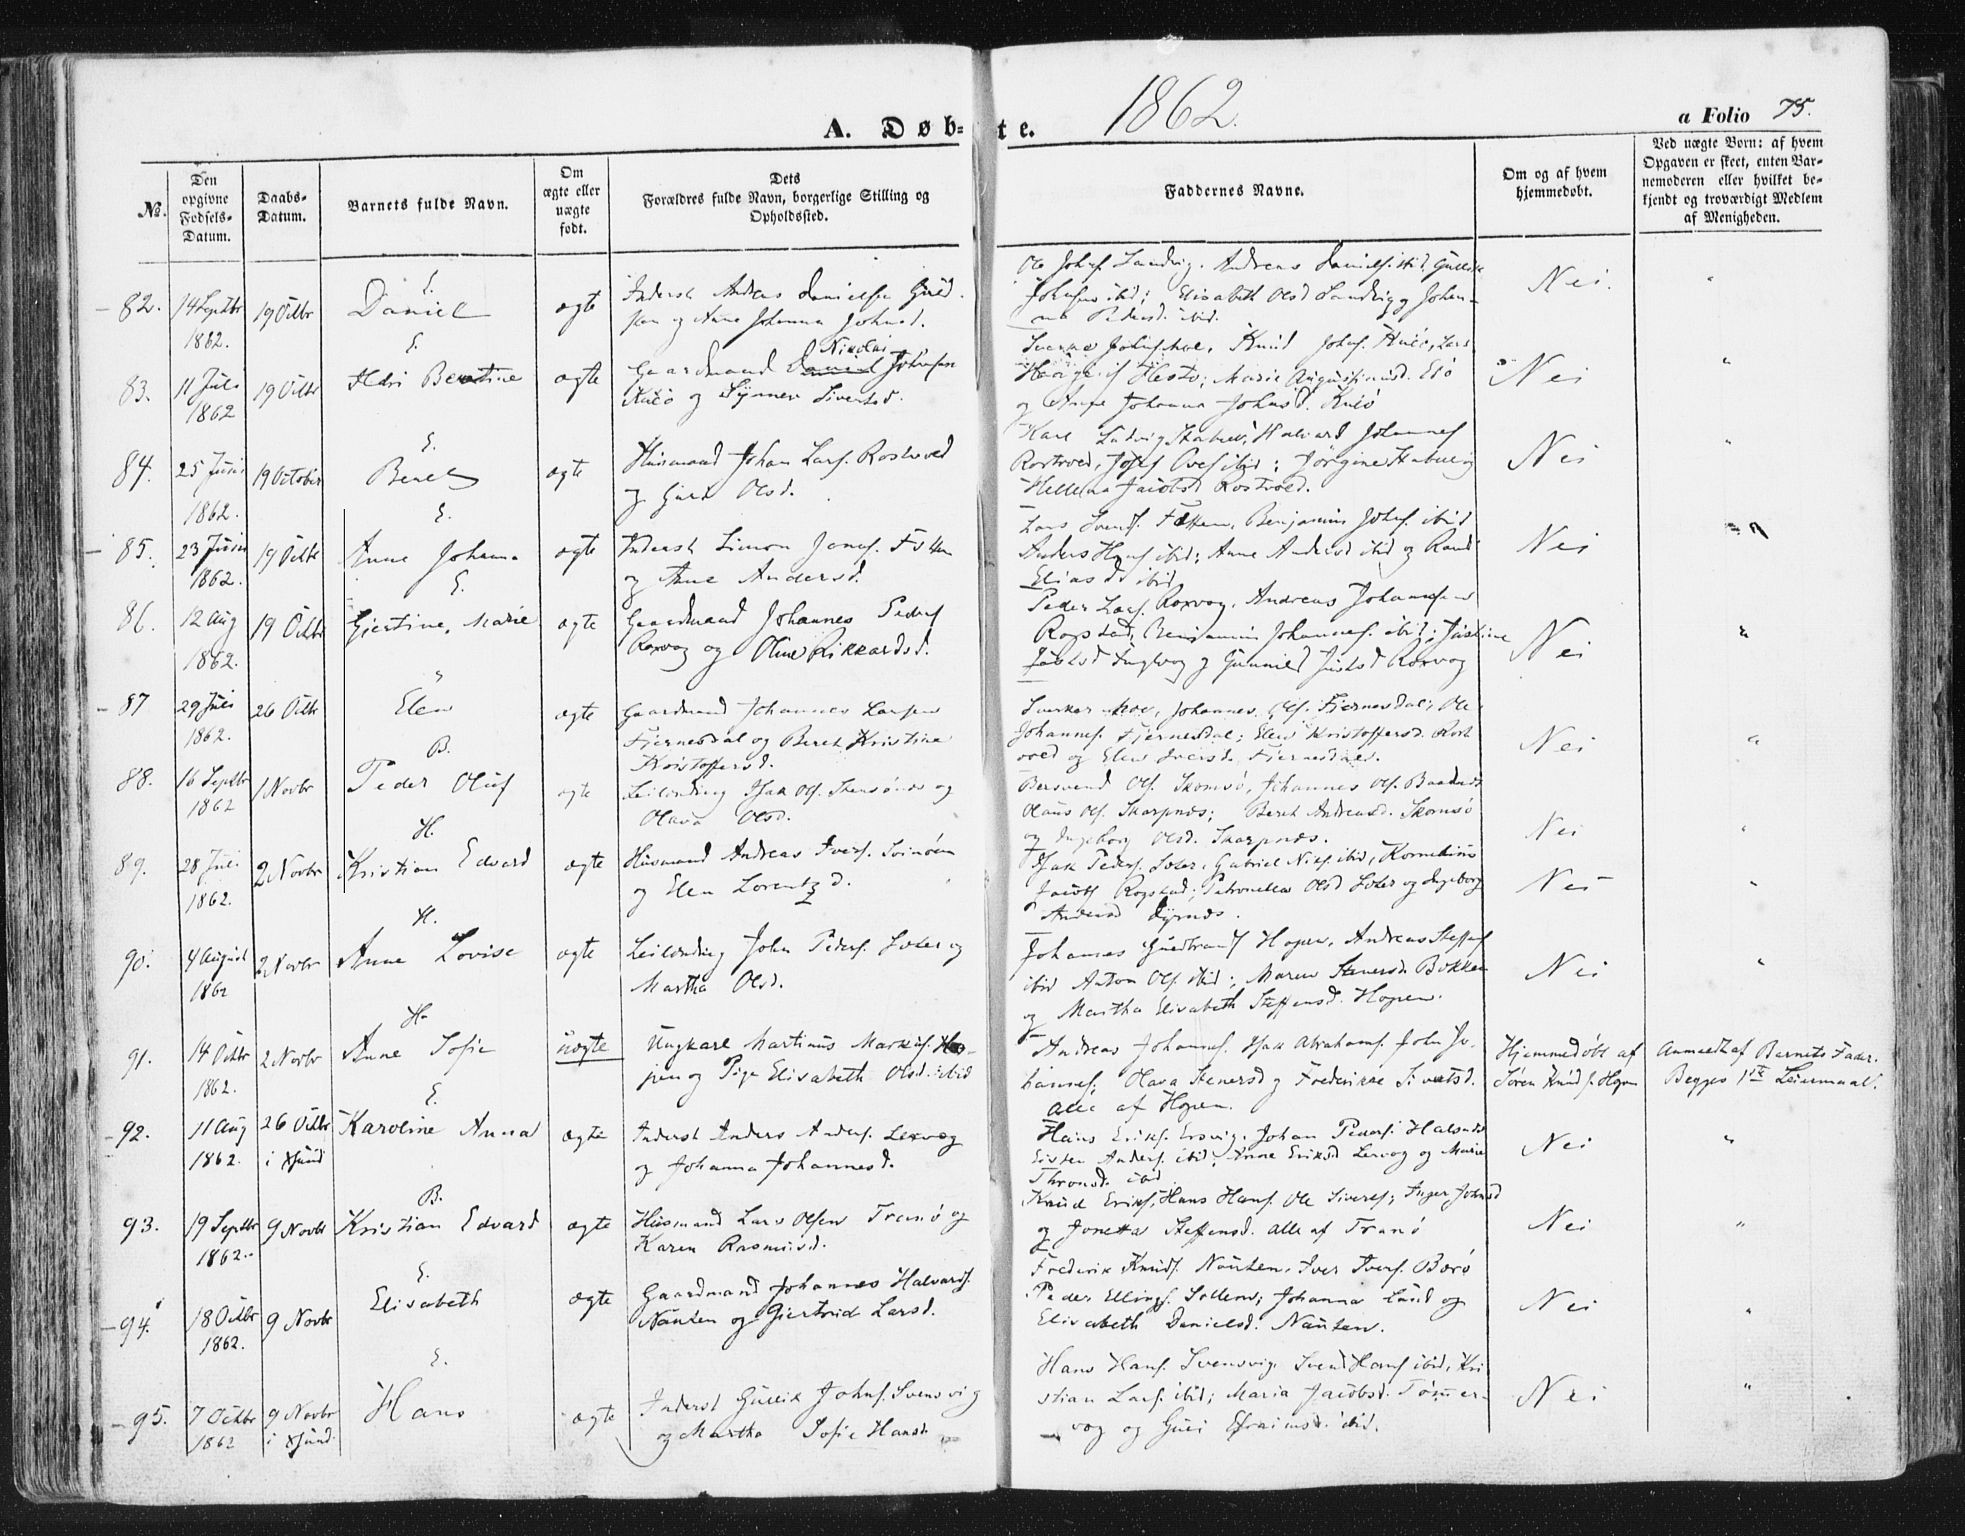 A. Døb= te.
1862.
a Folio 75.
No.
Den opgivne Fødsels-Datum.
Daabs-Datum.
Barnets fulde Navn.
Om ægte eller uægte født.
Dets Forældres fulde Navn, borgerlige Stilling og Opholdssted.
Faddernes Navne.
Om og af hvem hjemmedøbt.
Ved uægte Børn: af hvem Opgaven er skeet, enten Barnemoderen eller hvilket bekjendt og troværdigt Medlem af Menigheden.
E.
82. 14 Septbr 19 Octbr Daniel ægte Inderst Andreas Danielsen
1862. og Anne Johanna Johnsd.
Andreas Danielss. ibid
ibid; Elisabeth Olsd
Pedersd. ibid.
Nei. "
E.
83. 11 Juli 19 Octbr Berntine ægte Gaardmand Nikolai Johnsen
1862 og Synnev Sivertsd.
Marie
og Johanna Johnsd.
Nei "
E.
84. 25 Juni 19 October Beret ægte Huusmand Johan Lars. Rostvoed
1862. og Guri Olsd.
Karl Ludvig Halvard Johannes
Rostvoed, ibid; Jørgine
Jacobsd Rostvoed.
Nei "
E.
85. 23 Juni 19 Octbr Anne Johanna ægte Inderst Simon Jonas.
1862. og Anne Andersd.
Lars Svends. Benjamin Johs. ibid
Anders Hans. ibid; Anne Andersd ibid og Randi
Eliasd ibid
Nei
E.
86. 12 Aug 19 Octbr Gjertine, Marie ægte Gaardmand Johannes Peders
1862. Roxvog og Oline Rikkardsd.
Peder Lars. Roxvog, Andreas Johannesen
Rogstad, Benjamin Johannes. ibid; Justine
og Gunnild Justsd Roxvog
Nei "
"
87 29 Juli 26 Octbr Elen ægte Gaardmand Johannes Larsen
1862. Fjernesdal og Beret Kristine
Kristoffersd.
Johannes Ols. Fjernesdal; Ole
Johannes. Fjernesdal; Elen Kristoffersd. Rost
voed og Elen Iversd. Fjernesdal.
Nei "
B.
88. 16 Septbr 1 Novbr Peder Oluf ægte Leilending Isak Ols. Stensønes og
1862 Olava Olsd.
Bersvend Ols. Skomsø, Johannes Ols.
Olaus Ols. Skarpnæs; Beret Andreasd. Skomsø
og Ingeborg Olsd. Skarpnæs.
Nei "
H.
89. 28 Juli 2 Novbr Kristian Edvard ægte Huusmand Andreas Ivers. Svinøen
1862. og Elen Lorentzd.
Isak Peders. Gabriel Nils. ibid, Kornelius
Jacobs Rogstad; Petronelle Olsd og Ingeborg
Andersd Dyrnæs.
Nei "
H.
90. 4 August 2 Novbr Anne Lovise ægte Leilending John Peders. og
1862 Martha Olsd.
Johannes Gudbrands Hopen, Andreas Steffens
ibid Anton Ols. ibid; Maren Stenersd. Bekken
og Martha Elisabeth Steffensd. Hopen.
Nei "
H.
91. 14 Octbr 2 Novbr Anne Sofie uægte Ungkarl Martinus Markus. Ho-
1862. pen og Pige Elisabeth Olsd. ibid
Andreas Johannes. Isak Abrahams. John Jo
hannes; Olava Stenersd og Frederikke Sivertsd.
alle af Hopen.
Hjemmedøbt af
Søren Knuds. Hopen
Anmeldt af Barnets Fader.
Begges 1ste Leiermaal.
E.
92. 11 Aug 26 Octbr Karoline Anna ægte Inderst Anders Anders. Lervog
1862. i Kund og Johanna Johannesd.
Hans Eriks. Ersvig, Johan Peders. Halsnes
Anders. ibid; Anne Eriksd Lervog og Marie
Thronsd. ibid
Nei "
B.
93. 19 Septbr 9 Novbr Kristian Edvard ægte Huusmand Lars Olsen Tranø og
1862. Karen Rasmusd.
Knud Eriks, Hans Hans. Ole Sivers; Inger Johnsd
og Jonetta Steffensd. alle af Tranø
Nei "
E.
94. 18 Octbr 9 Novbr Elisabeth ægte Gaardmand Johannes Halvards.
1862. Nausten og Gjertrud Larsd.
Frederik Knuds. Nausten, Iver Ivers. Barø
Peder Ellings. Sollem; Johanna Lund og
Elisabeth Danielsd. Nausten.
Nei "
E.
95. 7 Octbr 9 Novbr Hans ægte Inderst Gullik Johns. Svensvig
1862 i Kund. og Martha Sofie Hansd.
Hans Hans. Svensvig, Svend Hans ibid, Kri
stian Lars. ibid; Maria Jacobsd. Tømmer-
vog og Guri Efraimsd. ibid.
Nei "